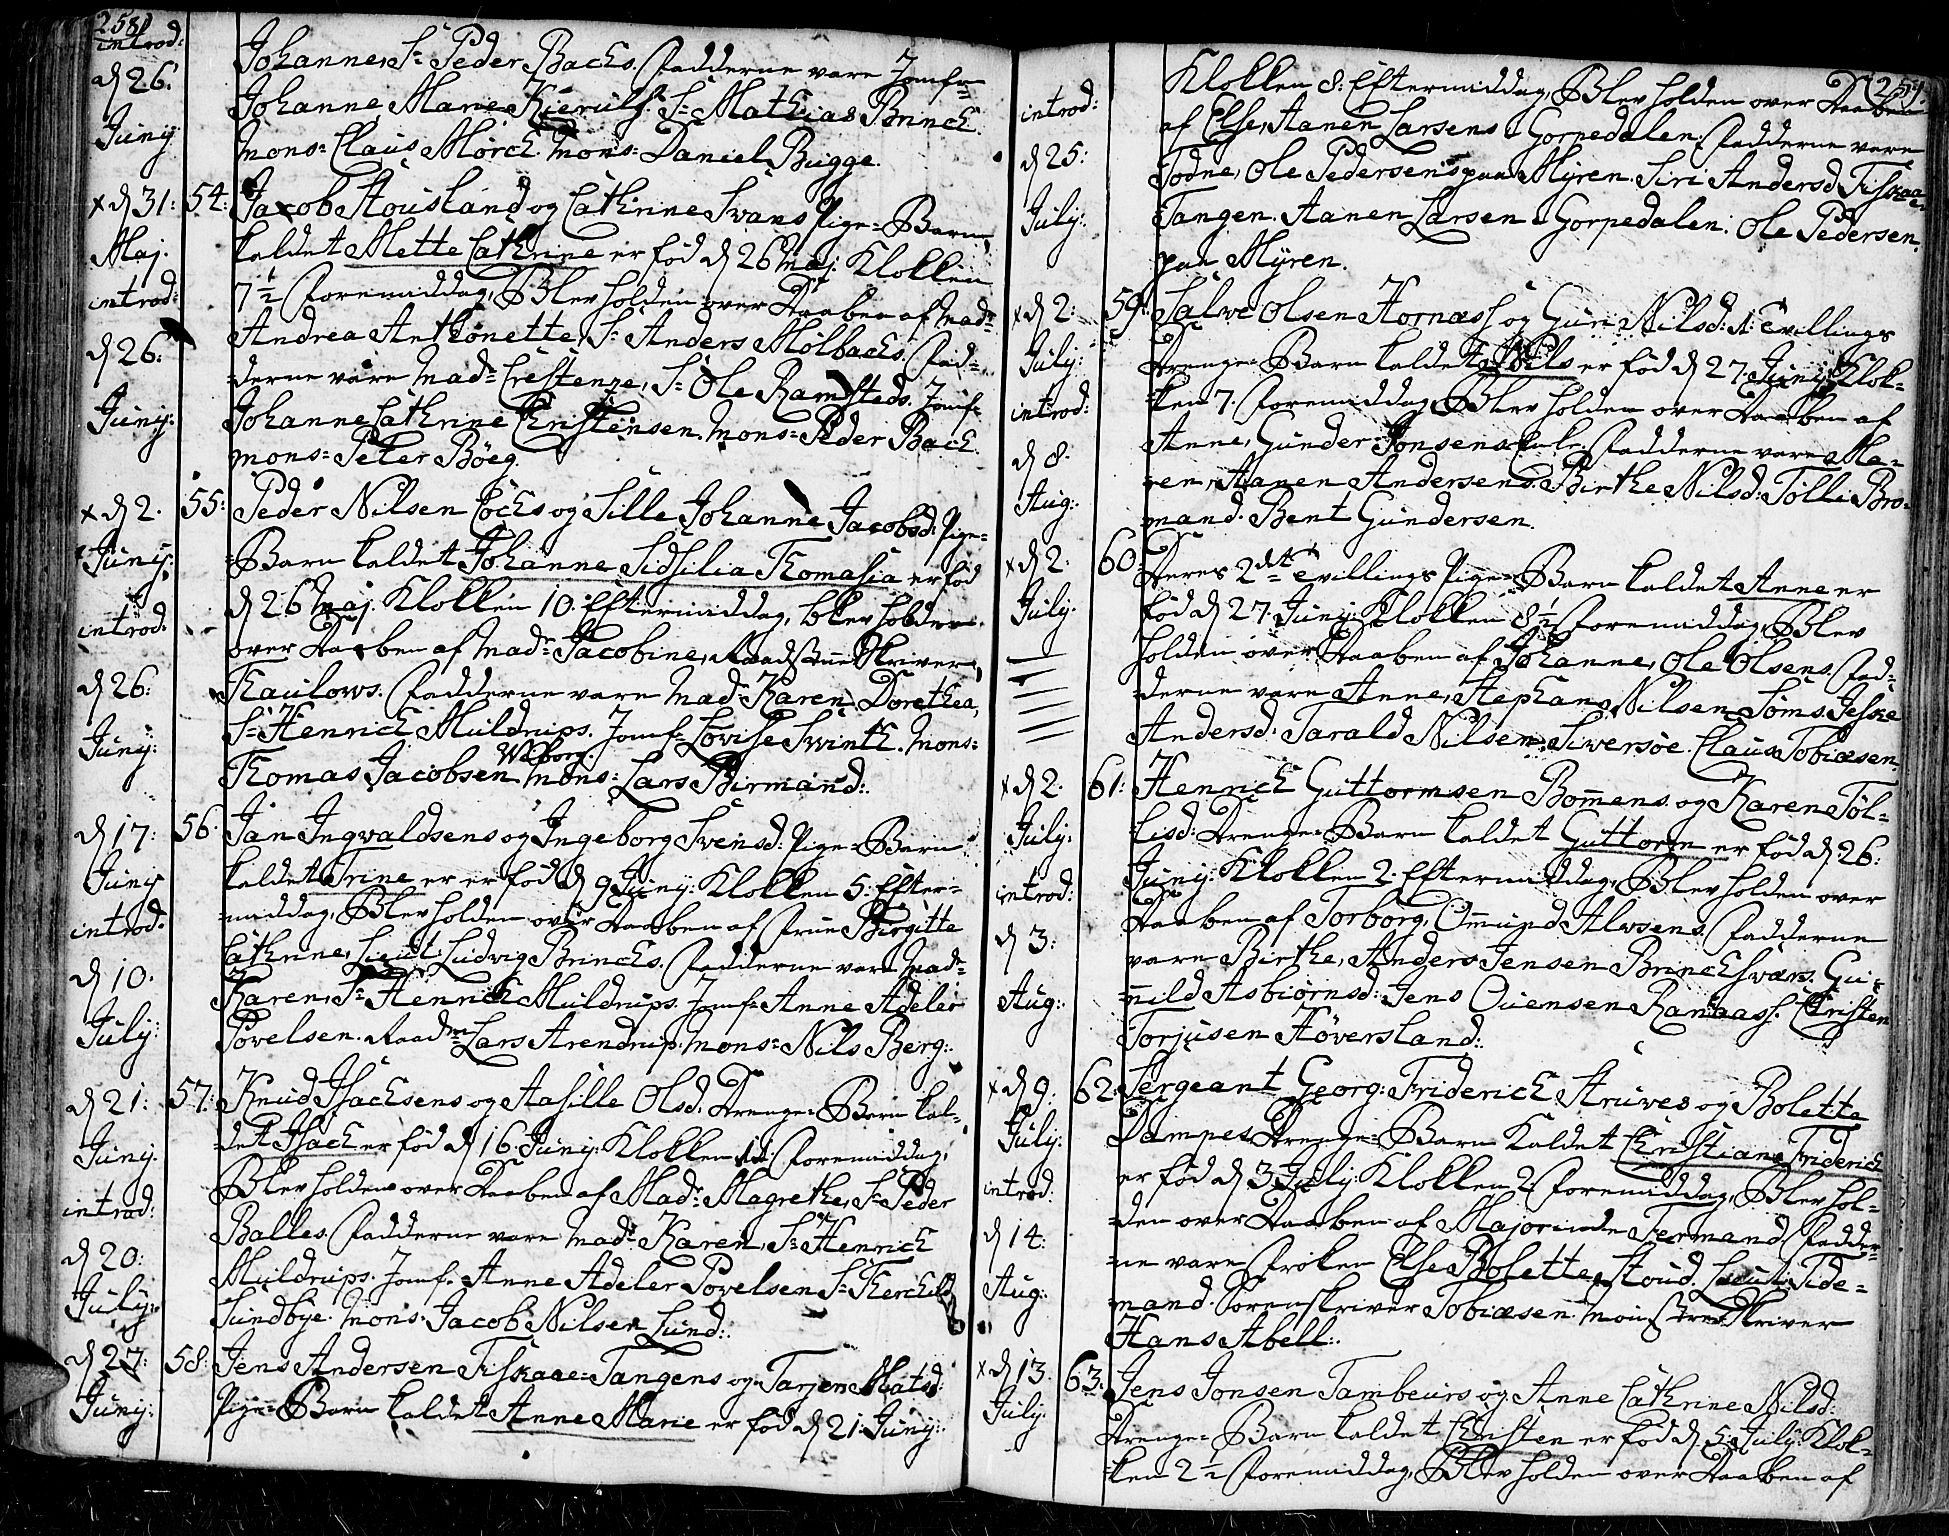 258
introd:
d 26.
Juny
Johanne, Sr Peder Bachs. Fadderne vare Jomfr=
Johanne Marie Kierulf. Sr Mathias Brinch.
Mons= Claus Mörch. Mons= Daniel Bugge.
x d 31: 54:
Maj.
introd:
d 26:
Juny:
Jacob Housland og Cathrine Svans Pige=Barn,
kaldet Mette Cathrine er fød d 26 Maj. Klokken
7½ Formiddag, Blev holden over Daaben af Mad=
Andrea Anthonette, Sr Anders Molbachs. Fad=
=derne vare Mad= Crestenze, Sr Ole Ramsteds. Jomf=
Johanne Cathrine Christensen. Mons= Peder Bach.
Mons= Peter Böeg.
x d 2. 55:
Juny:
introd.
d 26:
Juny:
Peder Nilsen Cochs og Sille Johanne Jacobsd: Pige=
=Barn kaldet Johanne Sidsilia Thomasia er fød
d 26 Maj. Klokken 10. Eftermiddag, blev holden
over Daaben af Mad= Jacobine, Raadstue Skriver
Kaulows. Fadderne vare Mad= Karen Dorethea,
Sr Henrich Muldrups. Jomf= Lovise Swinth. Mons=
Thomas Jacobsen Wiborg. Mons= Lars Birmand:
d 17: 56.
Juny
introd:
d 10.
July:
Jan Ingvaldsens og Ingeborg Svensd: Pige=Barn
kaldet Trine er er fød d 9 Juny: Klokken 5. Efter=
=middag, Blev holden over Daaben af Frue Birgitte
Cathrine, Lieut: Ludvig Brinchs. Fadderne vare Mad=
Karen, Sr Henrich Muldrups. Jomf= Anne Adeler
Povelsen. Raadm Lars Arendrup. Mons= Nils Berg:
d 21: 57:
Juny.
introd:
d 20:
July:
Knud Isachsens og Aasille Olsd: Drenge=Barn kal=
det Isach er fød d 16. Juny: Klokken 11. Formiddag,
Blev holden over Daaben af Mad= Magrethe, Sr Peder
Balles. Fadderne vare Mad= Karen, Sr Henrich
Muldrups. Jomf= Anne Adeler Povelsen. Sr Therchild
Sundbye. Mons= Jacob Nilsen Lund:
d 27: 58:
Juny:
Jens Andersen Fiskaae=Tangens og Tarjer Matsd:
Pige=Barn kaldet Anne Marie er fød d 21. Juny:
259.
introd:
d 25:
July:
Klokken 8: Eftermiddag, Blev holden over Daaben
af Else, Aanen Larsens i Gorpedalen. Fadderne vare
Todne, Ole Pedersens paa Myren. Siri Andersd. Fiskaae=
Tangen. Aanen Larsen i Gorpedalen. Ole Pedersen
paa Myren.
x d 2: 59:
July:
introd:
d 8.
Aug:
Salve Olsen Hornæss og Guri Nilsd: 1. Tvillings
Drenge=Barn kaldet Nils er fød d 27. Juny: Klok=
=ken 7. Formiddag, Blev holden over Daaben af
Anne, Gunder Jonsens. Fadderne vare Ma=
ren, Aanen Andersens. Birthe Nilsd: Tölli Bro=
mand. Bent Gundersen.
x d 2. 60.
July.
Deres 2det Tvillings Pige=Barn kaldet Anne er
fød d 27. Juny: Klokken 8½ Formiddag, Blev
holden over Daaben af Johanne, Ole Olsens. Fad=
=derne vare Anne, Stephan Nilsen Söms. Jeske
Andersd: Tarald Nilsen, Siversöe. Claus Tobiæsen.
x d 2. 61:
July.
introd:
d 3:
Aug:
Henrich Guttormsen Bomens og Karen Töl=
=lisd: Drenge=Barn kaldet Guttorm er fød d 26:
Juny: Klokken 2. Eftermiddag, Blev holden over
Daaben af Torborg, Omund Alvsens. Fadderne
vare Birthe, Anders Jensen Brinchsværs. Gu=
=nild Asbiörnsd: Jens Ouensen Randaas. Christen
Torjusen Höversland:
x d 9: 62:
July:
introd.
d 14:
Aug:
Sergeant Georg: Friderich Struves og Bolette
Dampes Drenge=Barn kaldet Christian Friderich
er fød d 3 July: Klokken 2: Formiddag, Blev hol=
=den over Daaben af Majorinde Fermand. Fadder=
=ne vare Fröken Else Bolette Stoud. Lieut: Tide=
=mand. Sorenskriver Tobiæsen. Mönsterskriver
Hans Abell:
x d 13. 63:
July:
Jens Jonsen Tambeurs og Anne Cathrine Nilsd:
Drenge=Barn kaldet Christen er fød d. 5. July: Klok=
=ken 2½ Formiddag, Blev holden over Daaben af